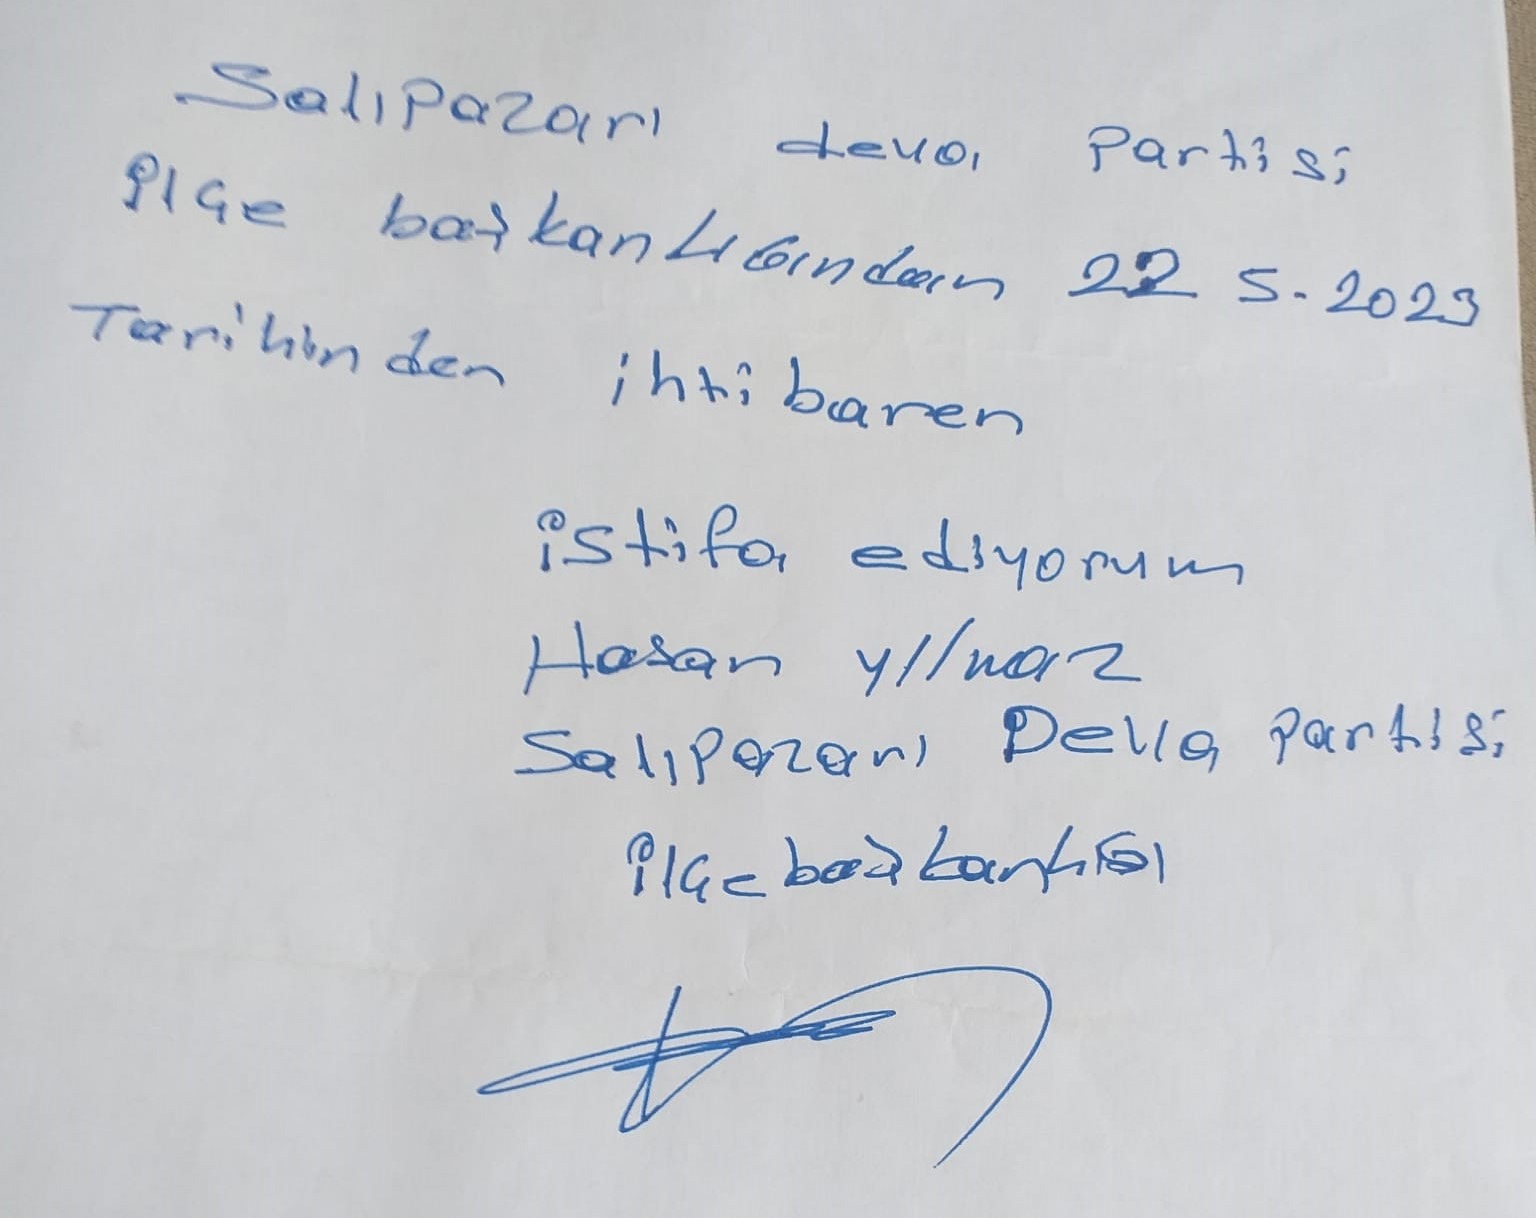 Salıpazarı deva Partisi
ilçe başkanlığından 22 5.2023
Tarihinden ihtibaren
istifa ediyorum
Hasan yılmaz
Salıpazarı Deva partisi
ilçe başkanlığı